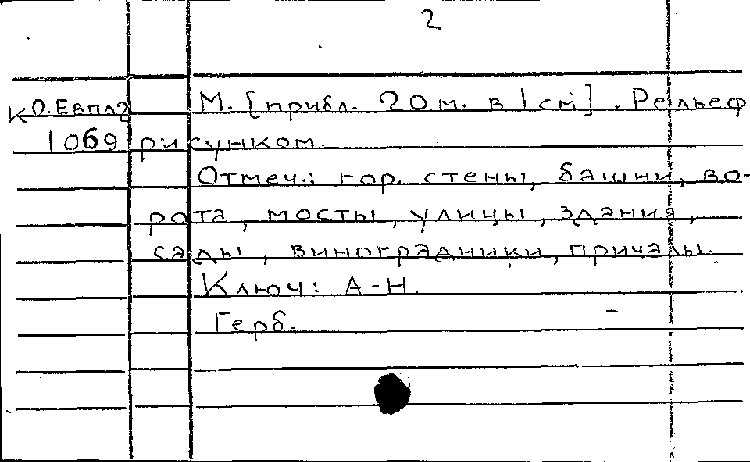 2
К О.Евпл2 М. [прибл. 20 м. в 1 см]. Рельеф
1069 рисунком.
Отмеч.: гор. стены, башни, во-
рота, мосты, улицы, здания,
сады, виноградники, причалы.
Ключ: А-Н.
Герб.